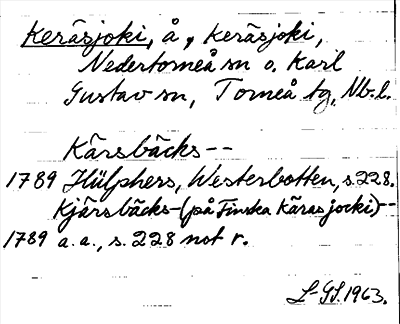 Keräsjoki, å, keräsjoki,
Nedertorneå sn o. Karl
Gustav sn, Torneå tg, Nb.l.
Kärsbäcks--
1789 Hülphers, Westerbotten, s.228.
Kjärsbäcks-(på Finska Käras jocki)--
1789 a.a., s.228 not r.
L-GS.1963.